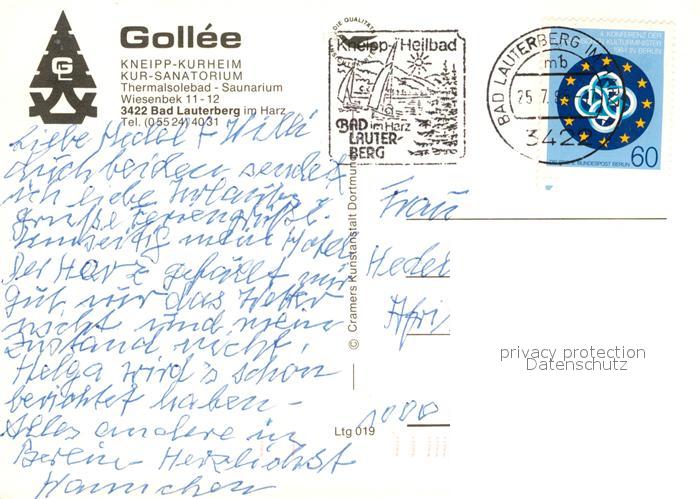 Gollée
KNEIPP-KURHEIM
KUR-SANATORIUM
Thermalsolebad - Saunarium
Wiesenbek 11-12
3422 Bad Lauterberg im Harz
Tel. (05524) 4031
GL
Kneipp-Heilbad
BAD im Harz
LAUTER-
BERG
BAD LAUTERBERG IM
mb
25.7.8
3422
4. KONFERENZ DER
KULTURMINISTER
1984 IN BERLIN
DEUTSCHE BUNDESPOST BERLIN
60
Liebe Hedel + Willi
Euch beiden sendet
ich liebe Urlaubs
grüße
mein Hotel
Der Harz gefällt mir
gut, nur das Wetter
nicht und mein
Zustand nicht.
Helga wird's schon
berichtet haben -
Alles andere in
Berlin Herzlichst
Hannchen
© Cramers Kunstanstalt Dortmund
Ltg 019
Frau
Hedel
Afri
1000
privacy protection
Datenschutz